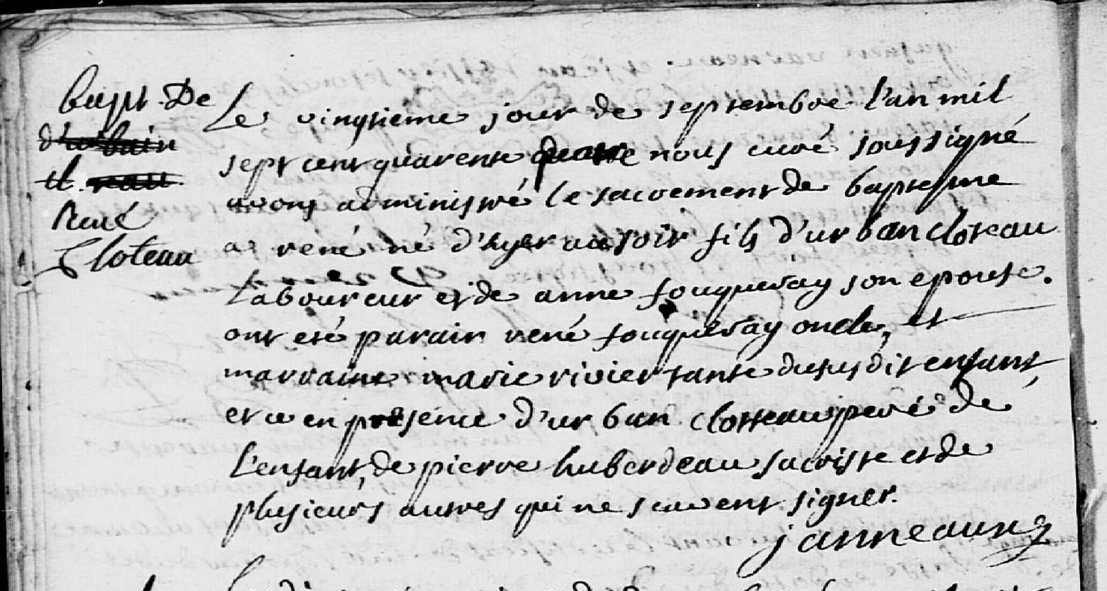 bapt. De
René
Cloteau
Le vingtieme jour de septembre l'an mil
sept cent quarente quatre nous curé soussigné
avons administré le sacrement de baptesme
a rené né d'hyer au soir fils d'urban cloteau
laboureur et de anne fouqueray son epouse.
ont eté parain rené fouqueray oncle, et
marraine marie rivier tante dusus dit enfant,
et ce en presence d'urban clotteau pere de
l'enfant, de pierre huberdeau sacriste et de
plusieurs autres qui ne scavent signer.
janneaux